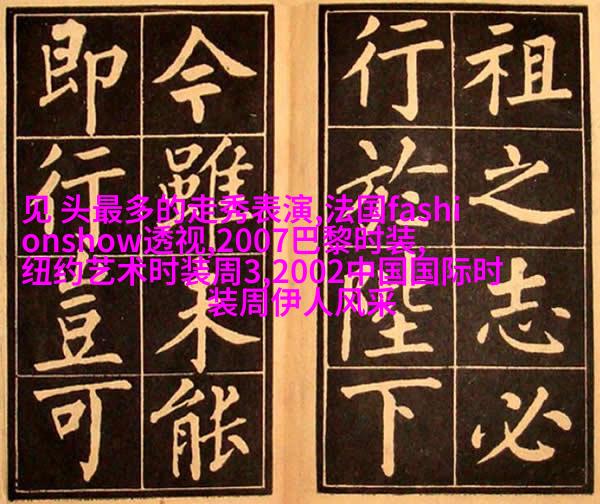 祖之志必
行於陛下
今雖未能
即行豈可
见 头最多的走秀表演,法国fashi
onshow透视,2007巴黎时装,
纽约艺术时装周3,2002中国国际时
装周伊人风采